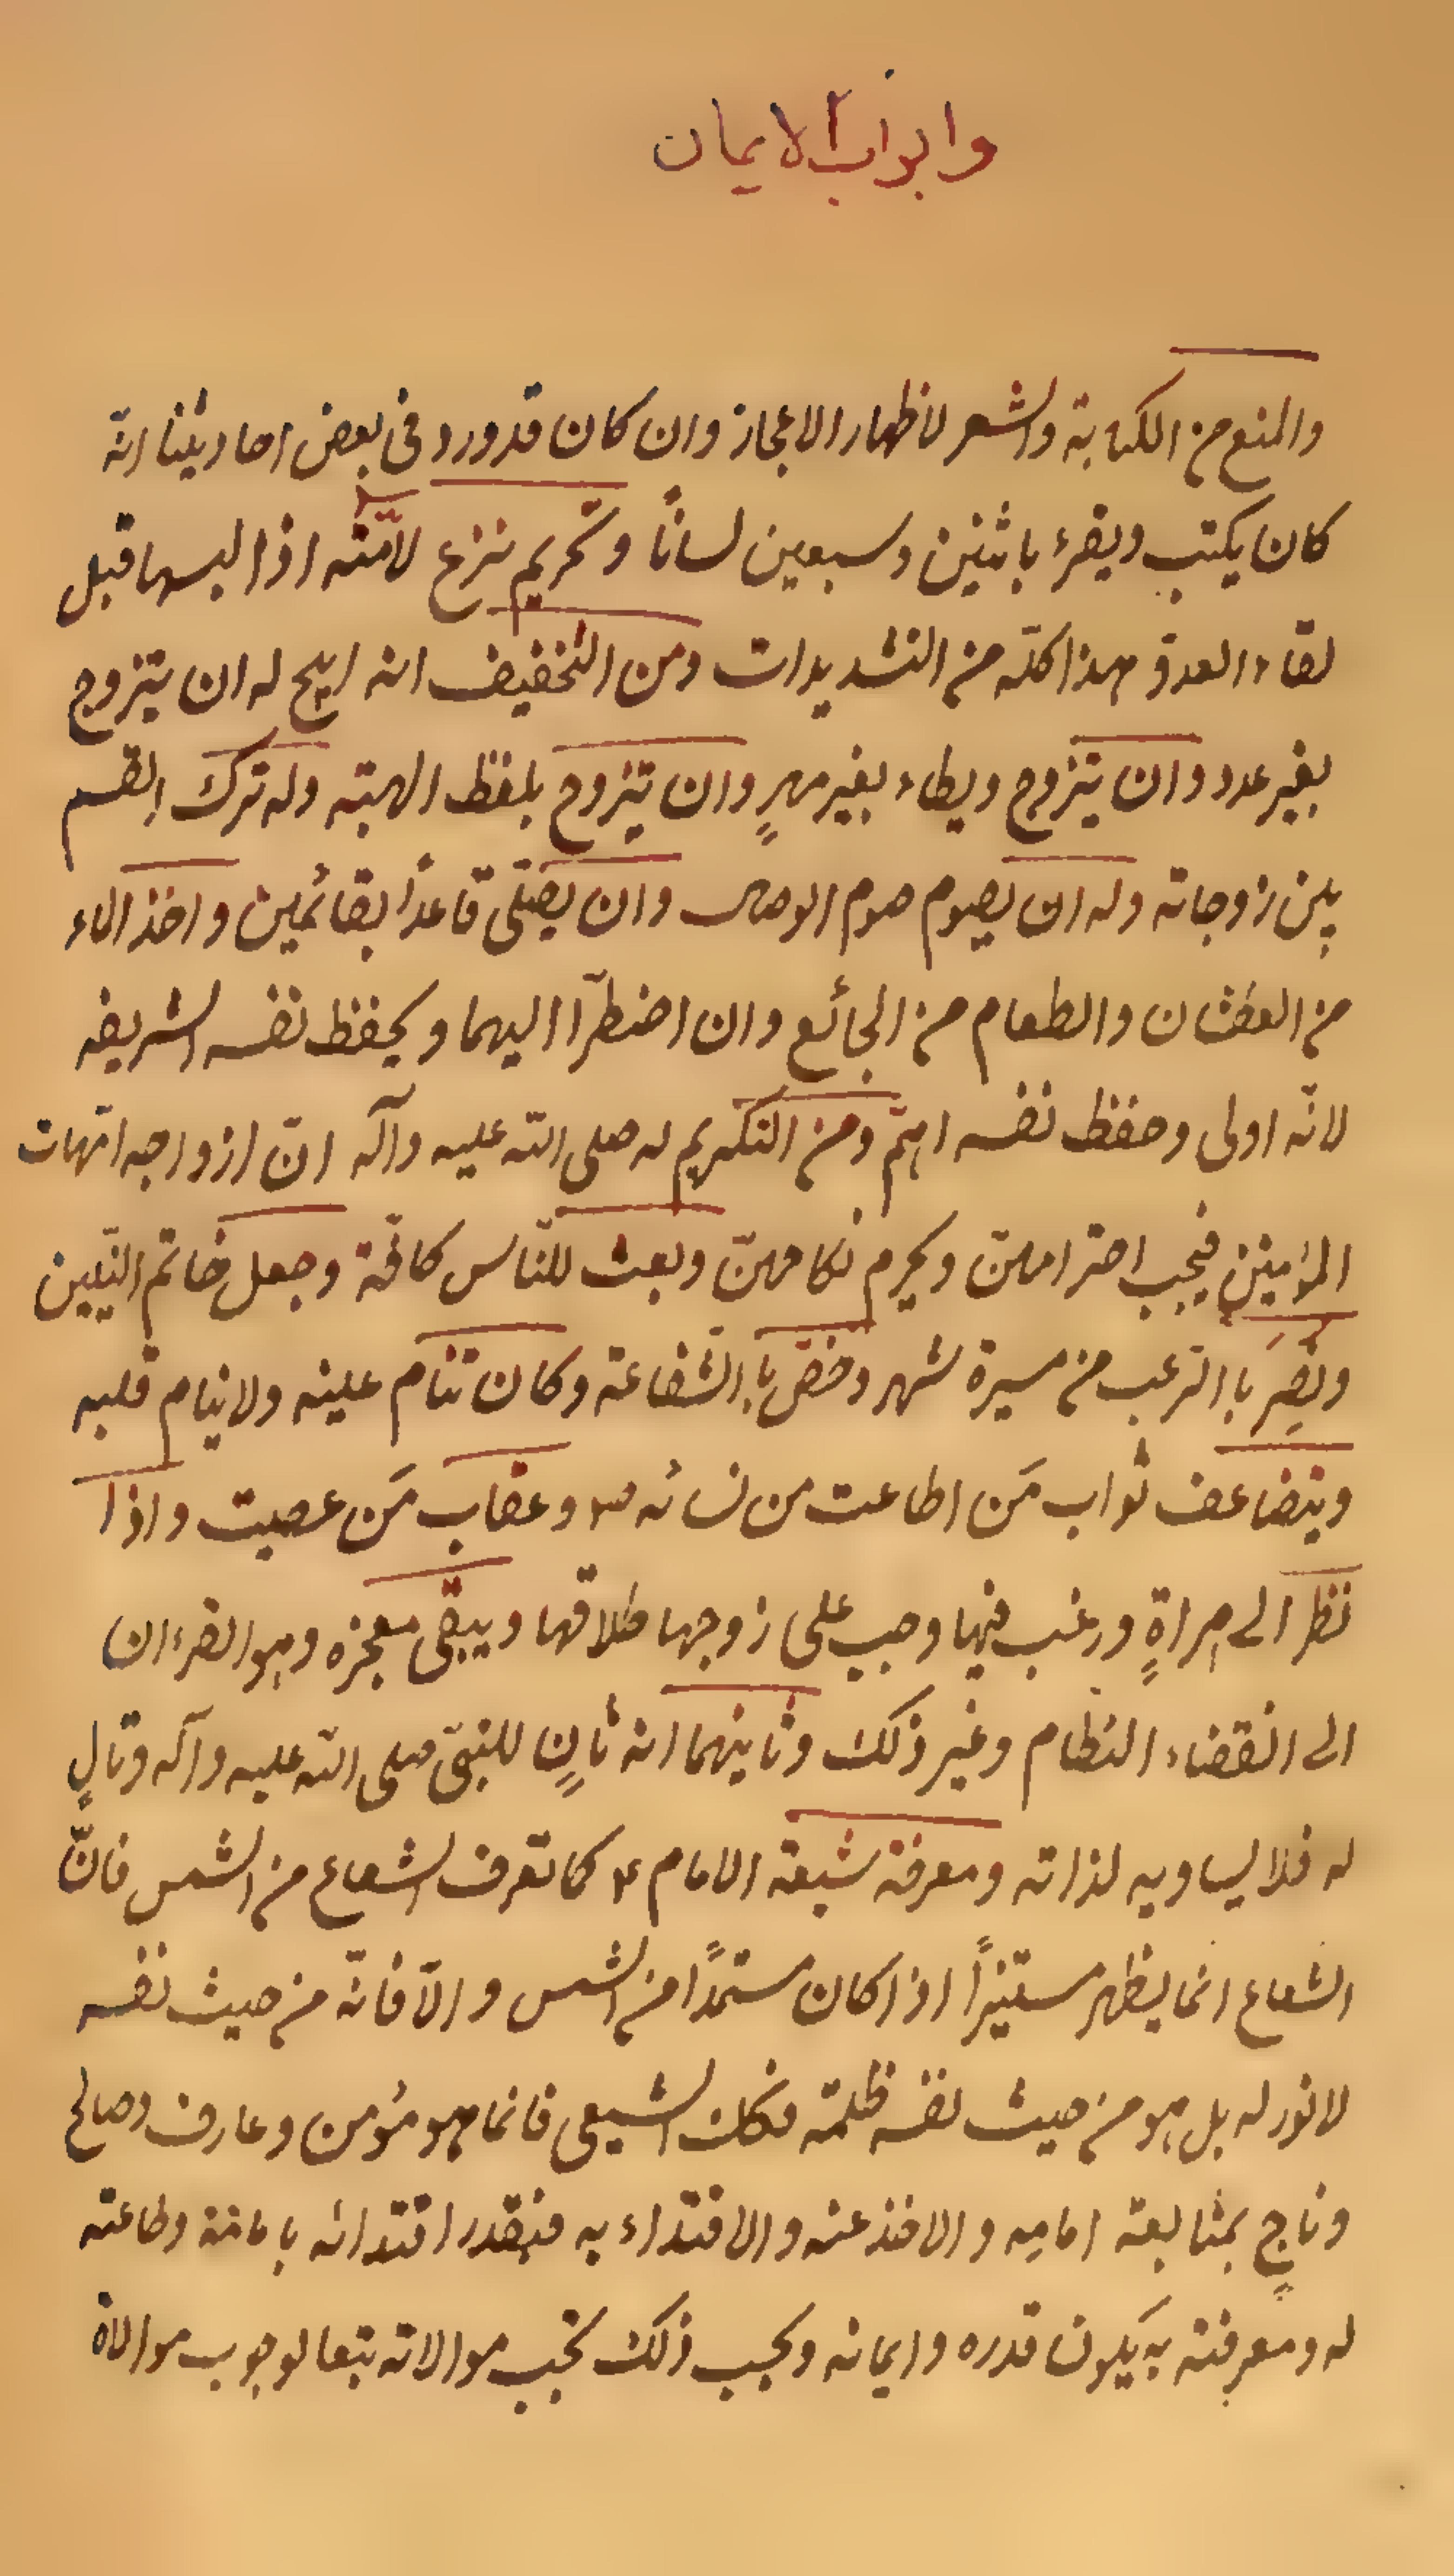 وابواب الايمان
والمنع من الكتابة والشعر لاظهار الاعجاز وان كان قد ورد فى بعض احاديثنا انّه
كان يكتب ويقرء باثنين وسبعين لسانًا وتحريم نزع لأمّته اذا لبسها قبل
لقاء العدوّ هذا كلّه من التشديدات ومن التخفيف انه ابيح له ان يتزوج
بغير عدد وان يتزوج ويطاء بغير مهرٍ وان يتزوج بلفظ الهبته وله ترك القسم
بين زوجاته وله ان يصوم صوم الوصال وان يصلّى قاعداً بقائمين واخذ الماء
من العطشان والطعام من الجائع وان اضطرّا اليهما ويحفظ نفسه الشريفه
لانّه اولى وحفظ نفسه اهمّ ومن التكريم له صلى الله عليه وآله انّ ازواجه امّهات
المؤمنين فيجب احترامهنّ ويحرم نكاحهنّ وبعث للنّاس كافّة وجعل خاتم النبّيين
ونُصِرَ باالرّعب من مسيرة شهر وخصّ باالشّفاعة وكان تنام عينه ولا ينام قلبه
ويتضاعف ثواب مَن اطاعت من نسائه ص وعقاب مَن عصيت واذا
نظر الى امراةٍ ورغب فيها وجب على زوجها طلاقها ويبقى معجزه وهو القرءان
الى انقضاء النظام وغير ذلك وثانيهما انه ثانٍ للنبىّ صلى الله عليه وآله وتالٍ
له فلا يساويه لذاته ومعرفة شيعة الامام ع كما تعرف الشعاع من الشمس فانّ
الشعاع انما يظهر مستنيراً اذا كان مستمدًا من الشمس والّا فانّه من حيث نفسه
لا نور له بل هو من حيث نفسه ظلمة فكك الشيعى فانما هو مؤمن وعارف وصالح
وناجٍ بمتابعة امامِه والاخذ عنه والاقتداء به فبقدر اقتدائه بامامه وطاعته
له ومعرفته به يكون قدره وايمانه وبحسب ذلك تجب موالاته تبعا لوجوب موالاة